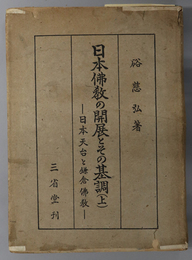 硲慈弘著
日本佛教の開展とその基調(上)
―日本天台と鎌倉佛教―
三省堂刊